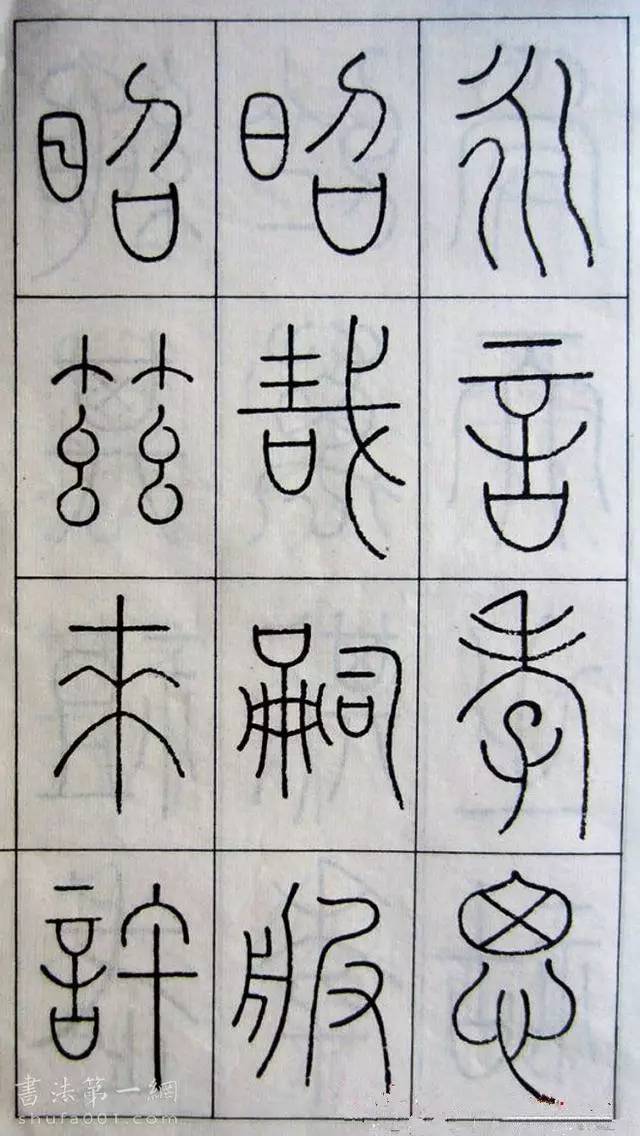 永言孝思
昭哉嗣服
昭茲來許
書法第一網
shufa001.com